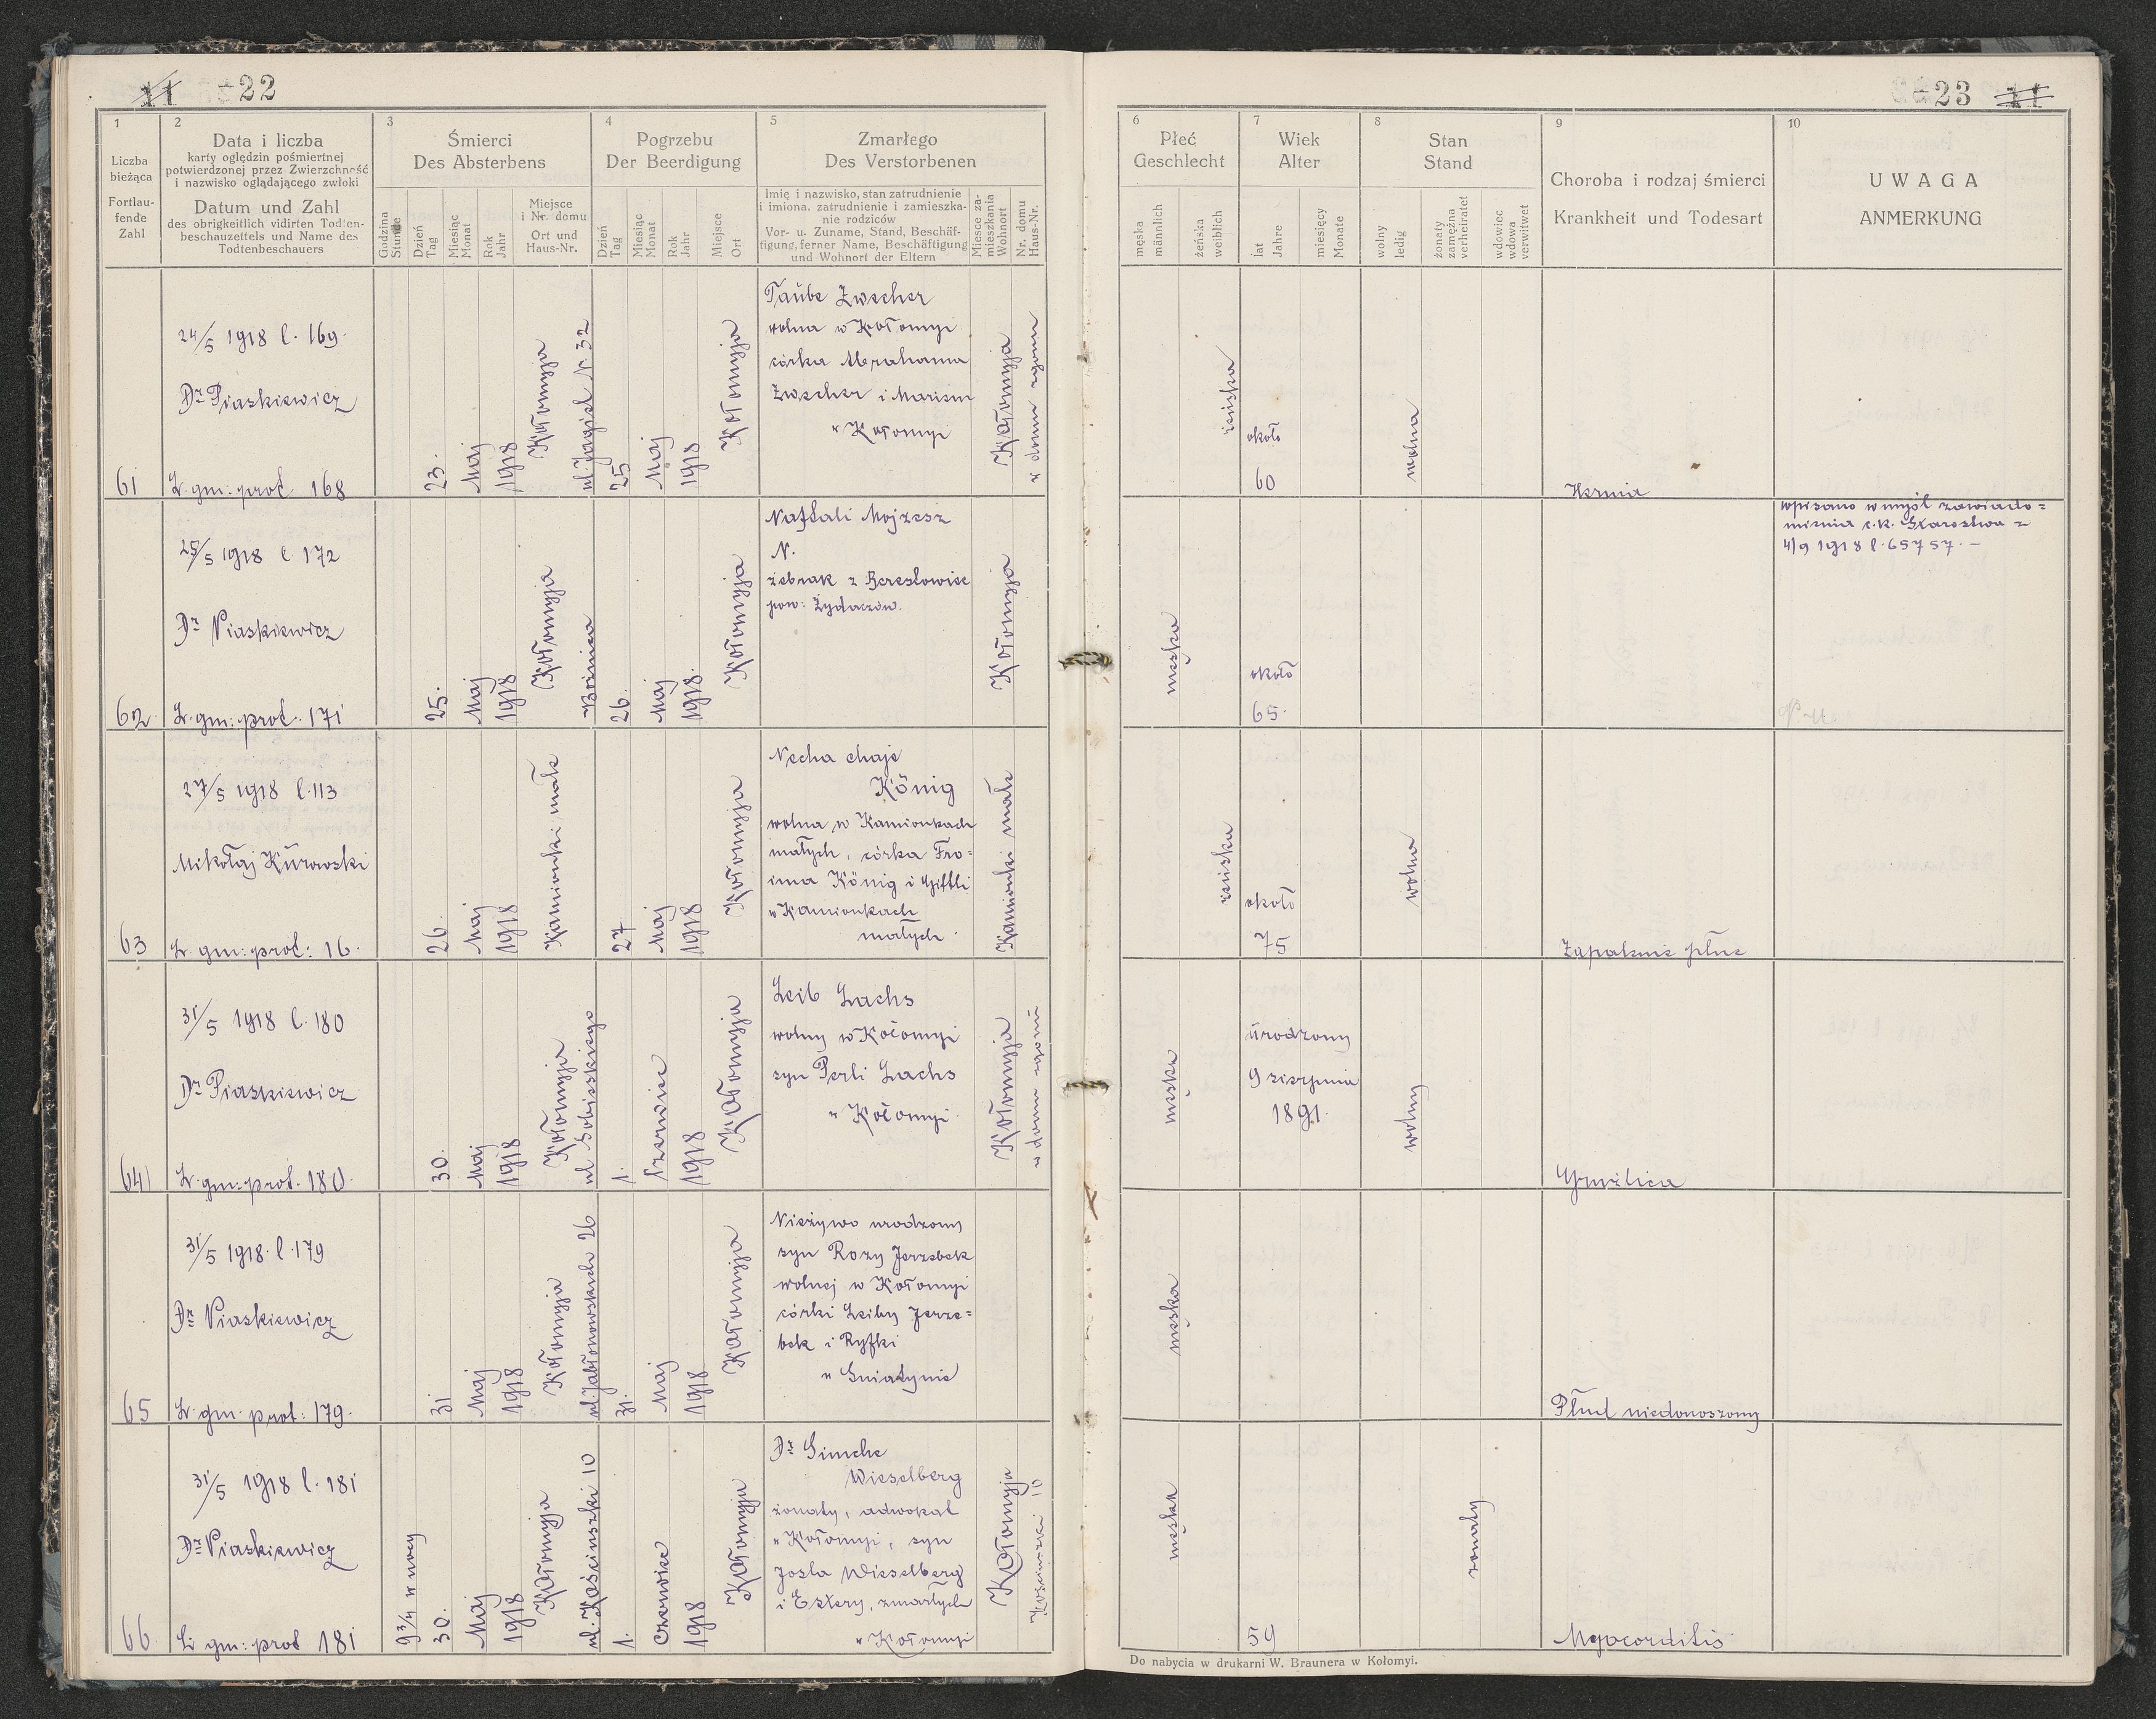 11 22
1
Liczba
bieżąca
Fortlau-
fende
Zahl
2
Data i liczba
karty oględzin pośmiertnej
potwierdzonej przez Zwierzchność
i nazwisko oglądającego zwłoki
Datum und Zahl
des obrigkeitlich vidirten Todten-
beschauzettels und Name des
Todtenbeschauers
3
Śmierci
Des Absterbens
Godzina
Stunde
Dzień
Tag
Miesiąc
Monat
Rok
Jahr
Miejsce
i Nr. domu
Ort und
Haus-Nr.
4
Pogrzebu
Der Beerdigung
Dzień
Tag
Miesiąc
Monat
Rok
Jahr
Miejsce
Ort
5
Zmarłego
Des Verstorbenen
Imię i nazwisko, stan zatrudnienie
i imiona, zatrudnienie i zamieszka-
nie rodziców
Vor- u. Zuname, Stand, Beschäf-
tigung, ferner Name, Beschäftigung
und Wohnort der Eltern
Miesce za-
mieszkania
Wohnort
Nr. domu
Haus-Nr.
61
24/5 1918 l. 169.
Dr Piaskiewicz
L. gm: prot. 168
23.
Maj
1918
Kołomyja
ul. Jagiel. N. 32
25
Maj
1918
Kołomyja
Taube Zwecher
wolna w Kołomyi
córka Abrahama
Zwecher i Mariem
w Kołomyi
Kołomyja
w domu zgonu
62
25/5 1918 l 172
Dr Piaskiewicz
L. gm: prot. 171
25.
Maj
1918
Kołomyja
Bóżnica
26.
Maj
1918.
Kołomyja
Naftali Mojzesz
N.
żebrak z
pow: Żydaczów.
Kołomyja
63
27/5 1918 l. 113
Mikołaj Kurowski
L. gm: prot: 16.
26.
Maj
1918
Kamionki małe
27
Maj
1918
Kołomyja
Necha chaje
König
wolna w Kamionkach
małych, córka Fro=
ima König i Gittli
w Kamionkach
małych.
Kamionki małe
64
31/5 1918 l. 180
Dr Piaskiewicz
L. gm: prot. 180.
30.
Maj
1918
Kołomyja
ul Sobieskiego
1.
Czerwiec
1918
Kołomyja
Leib Lachs
wolny w Kołomyi
syn Perli Lachs
w Kołomyi
Kołomyja
w domu zgonu
65
31/5 1918. l. 179
Dr Piaskiewicz
L. gm. prot: 179.
31
Maj
1918
Kołomyja
ul. Jabłonowskich 26
31.
Maj
1918
Kołomyja
Nieżywo urodzony
syn Rozy Jerzebek
wolnej w Kołomyi
córki Leiby Jerze=
bek i Ryfki
w Sniatynie
66
31/5 1918 l. 181
Dr Piaskiewicz
L. gm: prot 181
9 3/4 w nocy
30.
Maj
1918
Kołomyja
ul. Kościuszki 10
1.
Czerwiec
1918
Kołomyja
Dr Simche
Wieselberg
żonaty, adwokat
w Kołomyi, syn
Josla Wieselberg
i Estery, zmarłych
w Kołomyi
Kołomyja
Kościuszki 10
23 11
6
Płeć
Geschlecht
męska
männlich
żeńska
weiblich
7
Wiek
Alter
lat
Jahre
miesięcy
Monate
8
Stan
Stand
wolny
ledig
żonaty
zamężna
verheiratet
wdowiec
wdowa
verwitwet
9
Choroba i rodzaj śmierci
Krankheit und Todesart
10
UWAGA
ANMERKUNG
żeńska
około
60
wolna
Hernia
męska
około
65.
wpisano w myśl zawiado=
mienia c.k. Starostwa z
4/9 1918 l. 65757. —
żeńska
około
75
wolna
Zapalenie płuc
męska
urodzony
9 sierpnia
1891.
wolny
Gruźlica
męska
Płud niedonoszony
męska
59
żonaty
Myocorditis
Do nabycia w drukarni W. Braunera w Kołomyi.